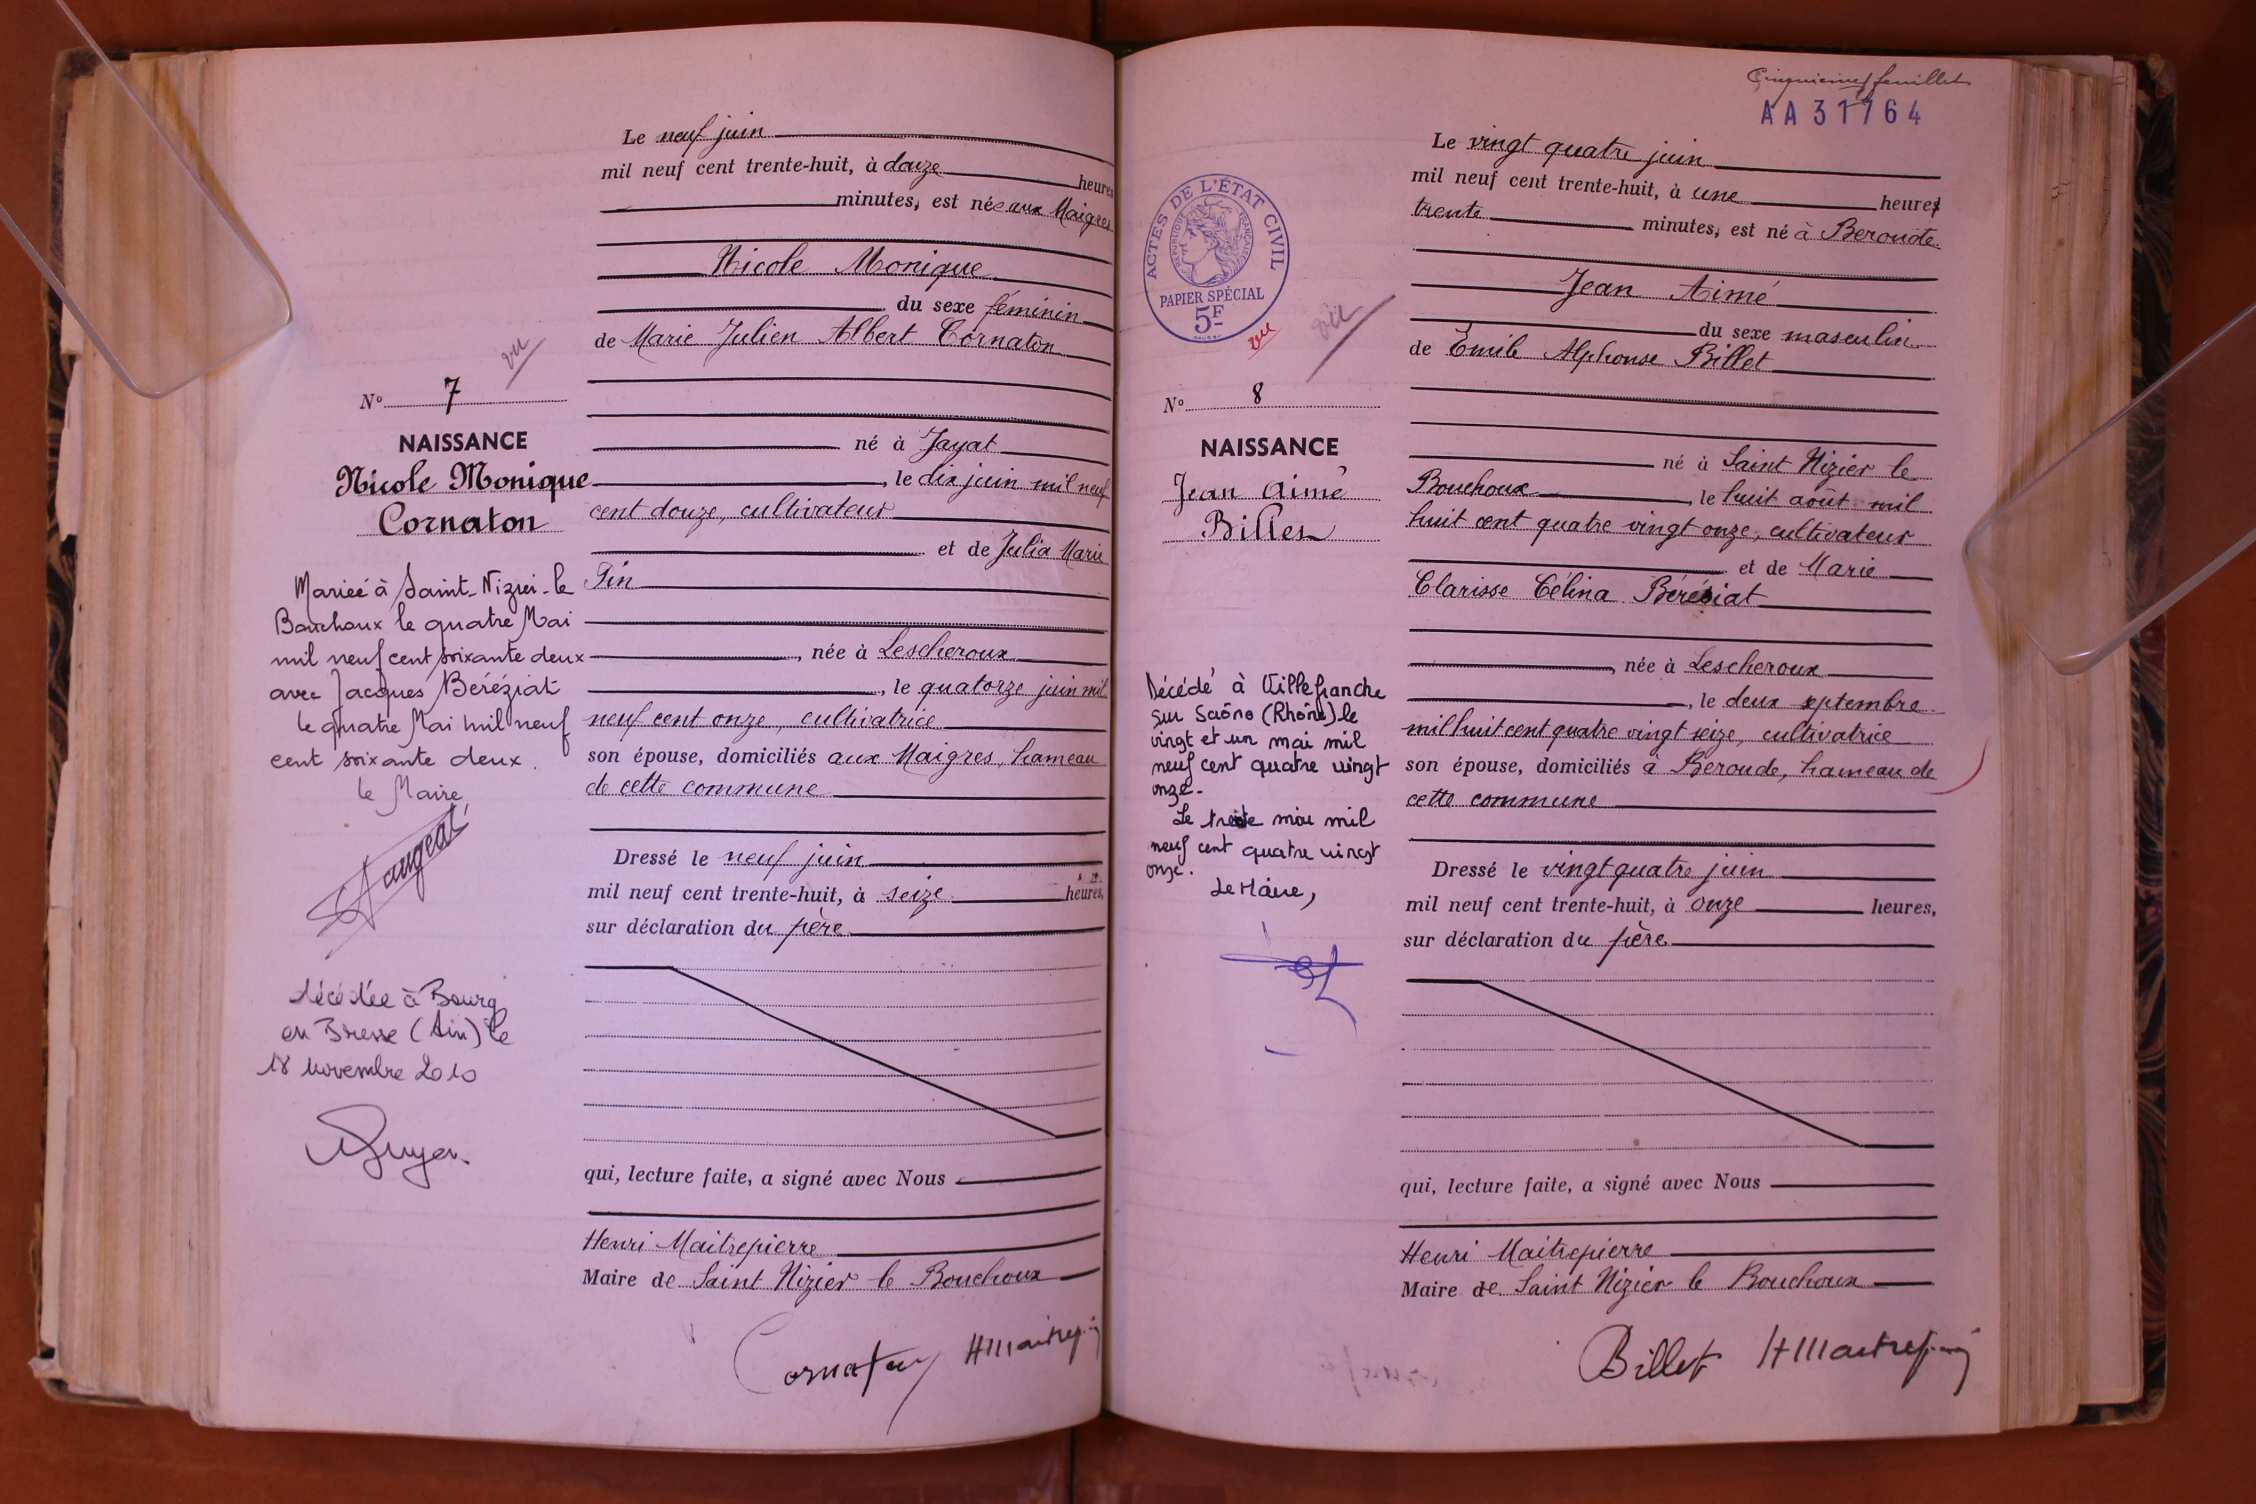 Le neuf juin
mil neuf cent trente-huit, à douze heures
minutes, est née aux Maigres
Nicole Monique
du sexe féminin
de Marie Julien Albert Cornaton
né à Jayat
, le dix juin mil neuf
cent douze, cultivateur
et de Julia Marie
Pin
, née à Lescheroux
, le quatorze juin mil
neuf cent onze, cultivatrice
son épouse, domiciliés aux Maigres, hameau
de cette commune
Dressé le neuf juin
mil neuf cent trente-huit, à seize heures,
sur déclaration du père
qui, lecture faite, a signé avec Nous
Henri Maitrepierre
Maire de Saint Nizier le Bouchoux
Cornaton HMaitrepierre
vu
N° 7
NAISSANCE
Nicole Monique
Cornaton
Mariée à Saint-Nizier-le
Bouchoux le quatre Mai
mil neuf cent soixante deux
avec Jacques Béréziat
le quatre Mai mil neuf
cent soixante deux.
le Maire
décédée à Bourg
en Bresse (Ain) le
18 novembre 2010
Cinquième feuillet
AA 31764
ACTES DE L'ÉTAT CIVIL
RÉPUBLIQUE FRANÇAISE
PAPIER SPÉCIAL
5F
vu
vu
N° 8
NAISSANCE
Jean Aimé
Billet
Décédé à Villefranche
sur Saône (Rhône) le
vingt et un mai mil
neuf cent quatre vingt
onze.
Le trente mai mil
neuf cent quatre vingt
onze.
Le Maire,
Le vingt quatre juin
mil neuf cent trente-huit, à une heure
trente minutes, est né à Beroude
Jean Aimé
du sexe masculin
de Emile Alphonse Billet
né à Saint Nizier le
Bouchoux , le huit août mil
huit cent quatre vingt onze, cultivateur
et de Marie
Clarisse Célina Béréziat
, née à Lescheroux
, le deux septembre
mil huit cent quatre vingt seize, cultivatrice
son épouse, domiciliés à Beroude, hameau de
cette commune
Dressé le vingt quatre juin
mil neuf cent trente-huit, à onze heures,
sur déclaration du père
qui, lecture faite, a signé avec Nous
Henri Maitrepierre
Maire de Saint Nizier le Bouchoux
Billet HMaitrepierre